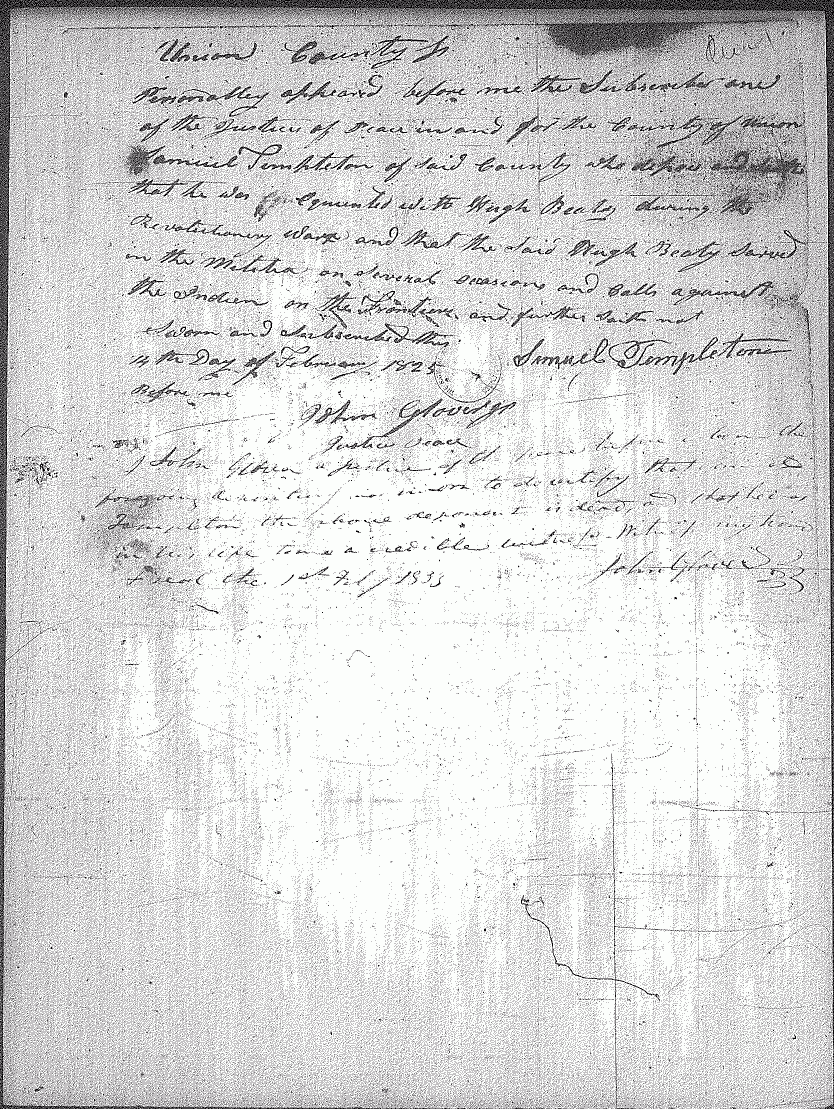 Union County Ss
Personalley appeared before me the Subscriber one
of the Justices of Peace in and for the County of Union
Samuel Templeton of said County who deposes and
that he was with Hugh Beaty during the
Revolutionery warr and that the said Hugh Beaty Sarved
in the Melitia on several ocasions and Calls against
the Indien on the Frontiers and further saith not
Sworn and Subscribed this
14th Day of February 1825 Samuel Templeton
Before me
John Glover
Justice peace
I John Glover a Justice of peace before the
foregoing was sworn to do certify that
Templeton the above deponent is dead, and that he
in his life time a credible witness. Witness my hand
& seal the 1st Feby 1833 John Glover